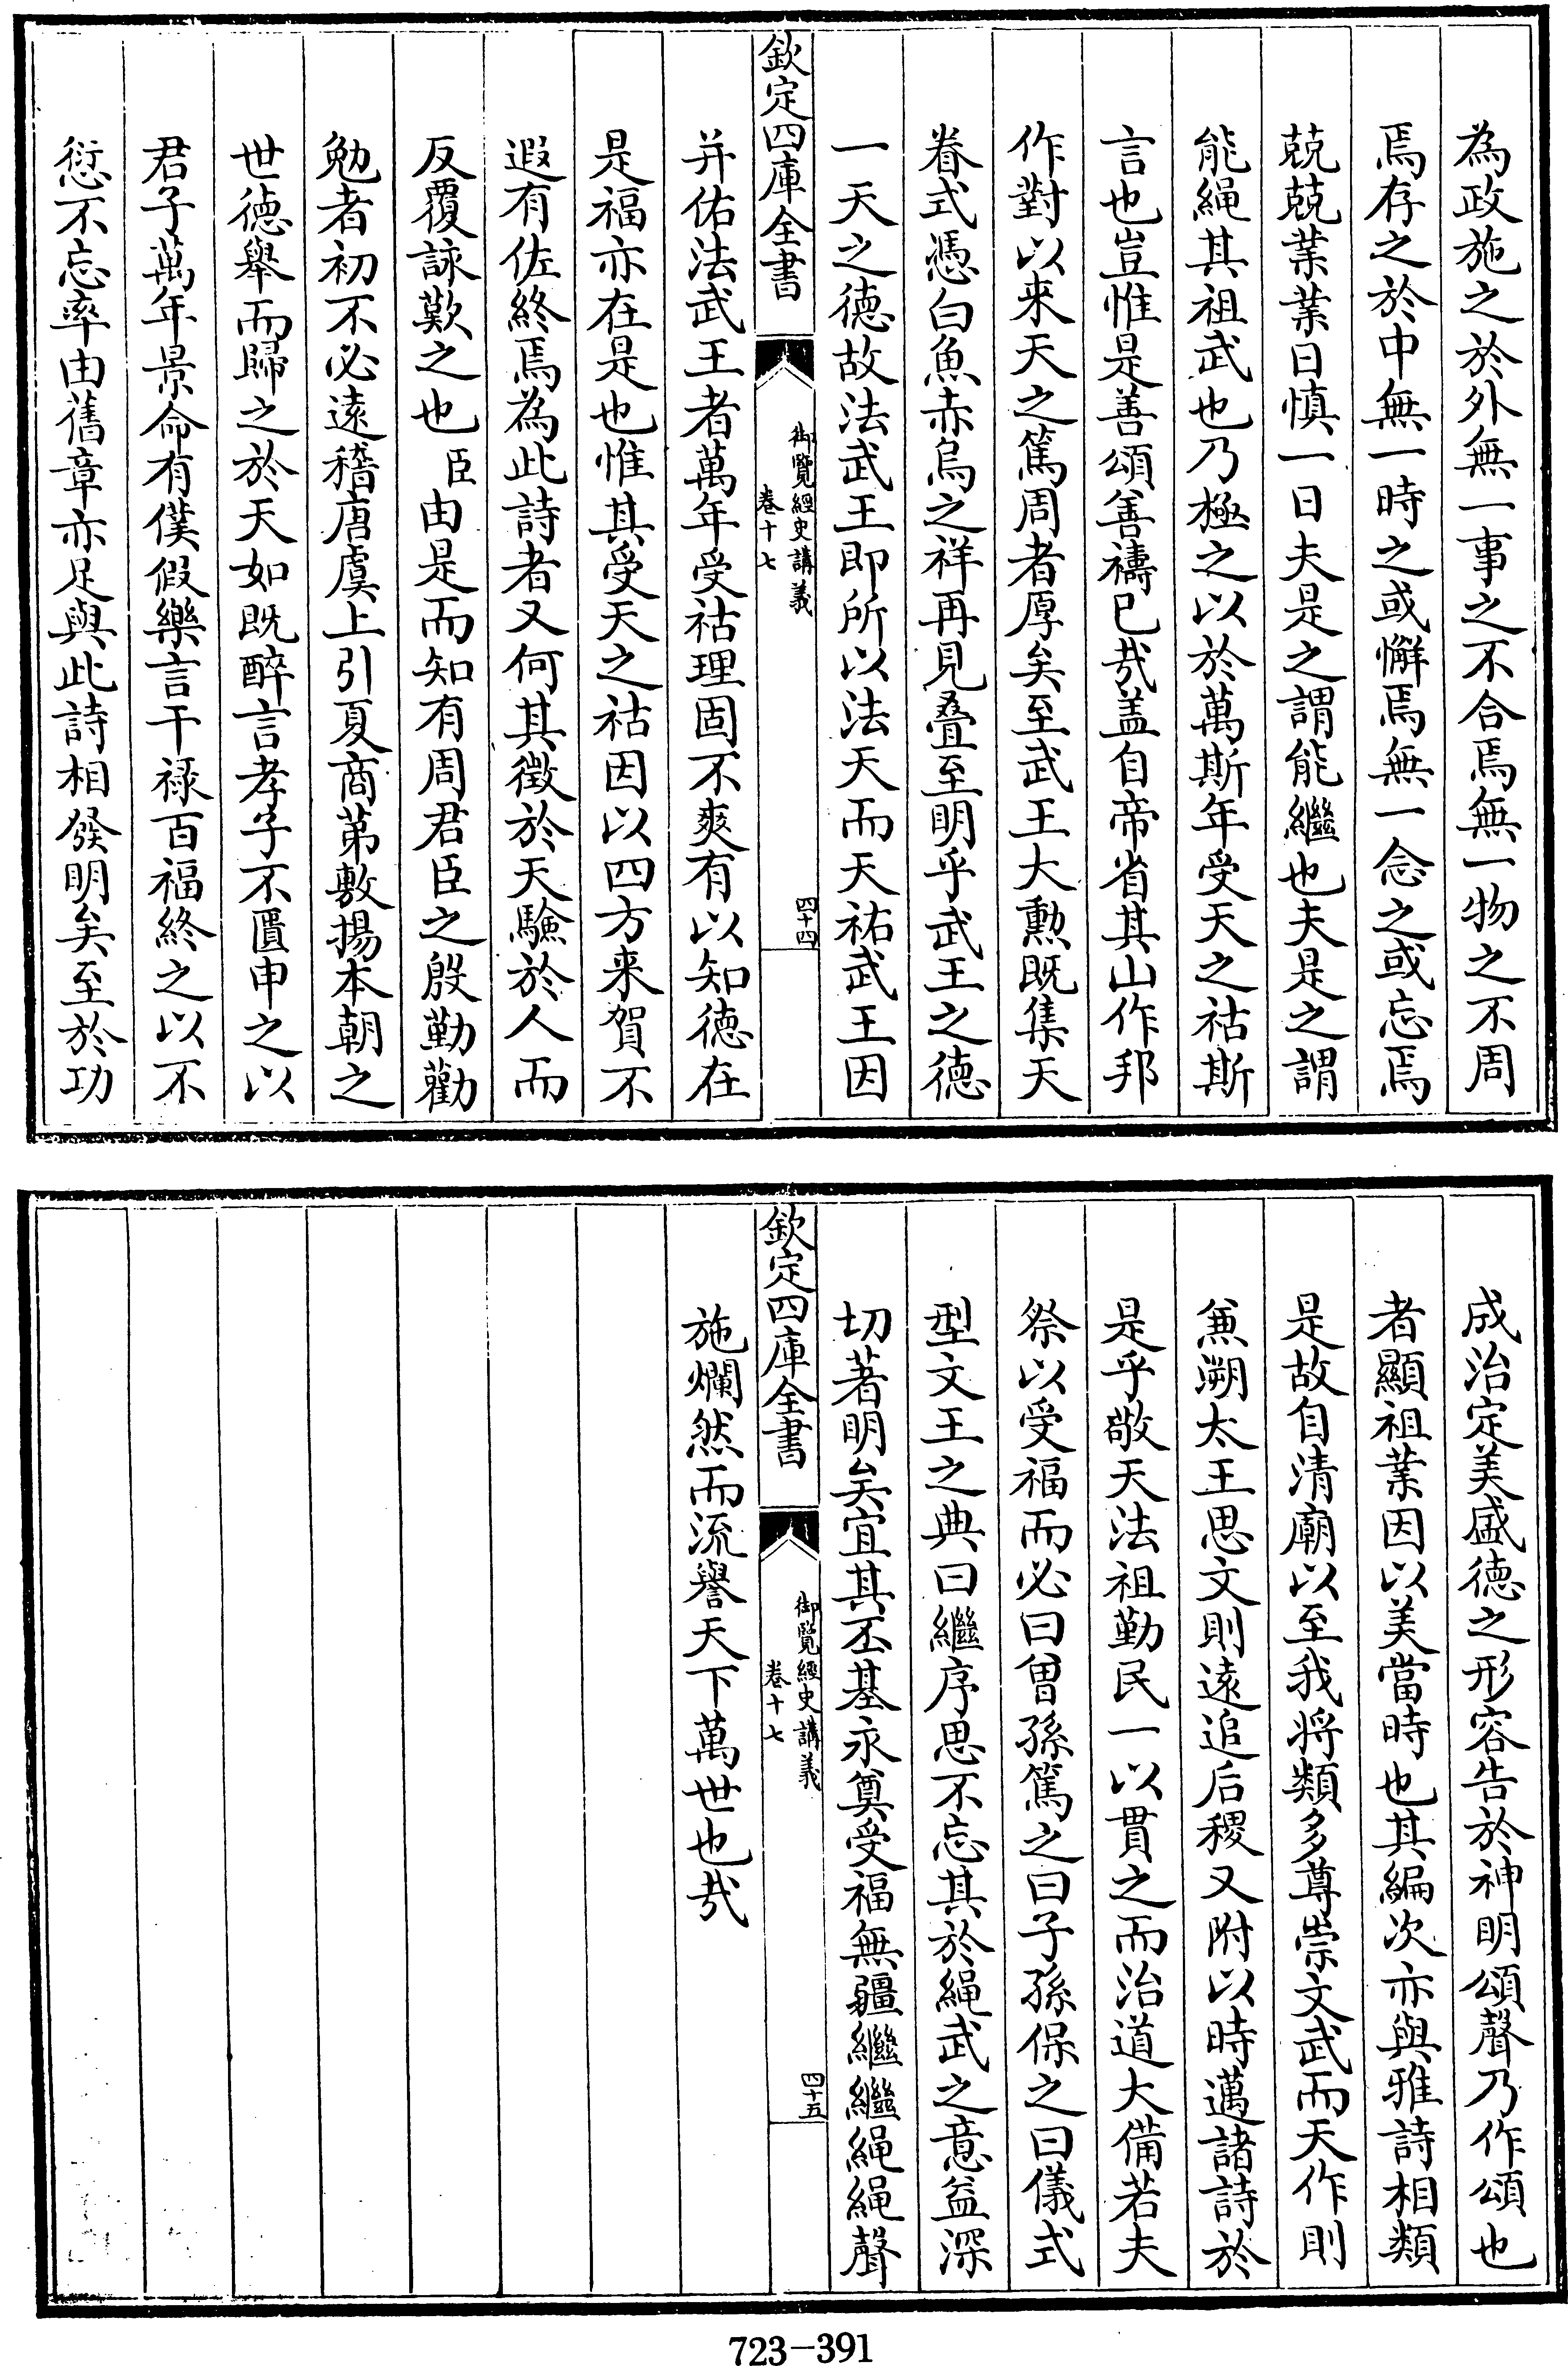 為政施之於外無一事之不合焉無一物之不周
焉存之於中無一時之或懈焉無一念之或忘焉
兢兢業業日慎一日夫是之謂能繼也夫是之謂
能繩其祖武也乃極之以於萬斯年受天之祜斯
言也豈惟是善頌善禱已㢤盖自帝省其山作邦
作對以来天之篤周者厚矣至武王大勲既集天
眷式憑白魚赤烏之祥再見叠至明乎武王之徳
一天之徳故法武王即所以法天而天祐武王因
欽定四庫全書
御覽經史講義
卷十七
四十四
并佑法武王者萬年受祜理固不爽有以知徳在
是福亦在是也惟其受天之祜因以四方来賀不
遐有佐終焉為此詩者又何其徵於天驗於人而
反覆詠歎之也臣由是而知有周君臣之殷勤勸
勉者初不必遠稽唐虞上引夏商第敷揚本朝之
世徳舉而歸之於天如既醉言孝子不匱申之以
君子萬年景命有僕假樂言干禄百福終之以不
愆不忘率由舊章亦足與此詩相發明矣至於功
成治定美盛徳之形容告於神明頌聲乃作頌也
者顯祖業因以美當時也其編次亦與雅詩相類
是故自清廟以至我将類多尊崇文武而天作則
兼溯太王思文則遠追后稷又附以時邁諸詩於
是乎敬天法祖勤民一以貫之而治道大備若夫
祭以受福而必曰曽孫篤之曰子孫保之曰儀式
型文王之典曰繼序思不忘其於繩武之意益深
切著明矣宜其丕基永奠受福無疆繼繼繩繩聲
欽定四庫全書
御覽經史講義
卷十七
四十五
施爛然而流譽天下萬世也㢤
723-391